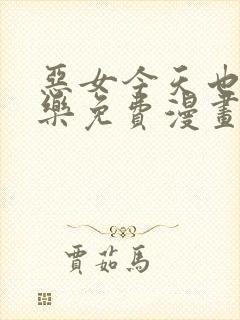 惡女今天也
樂免費漫畫
賈茹馬